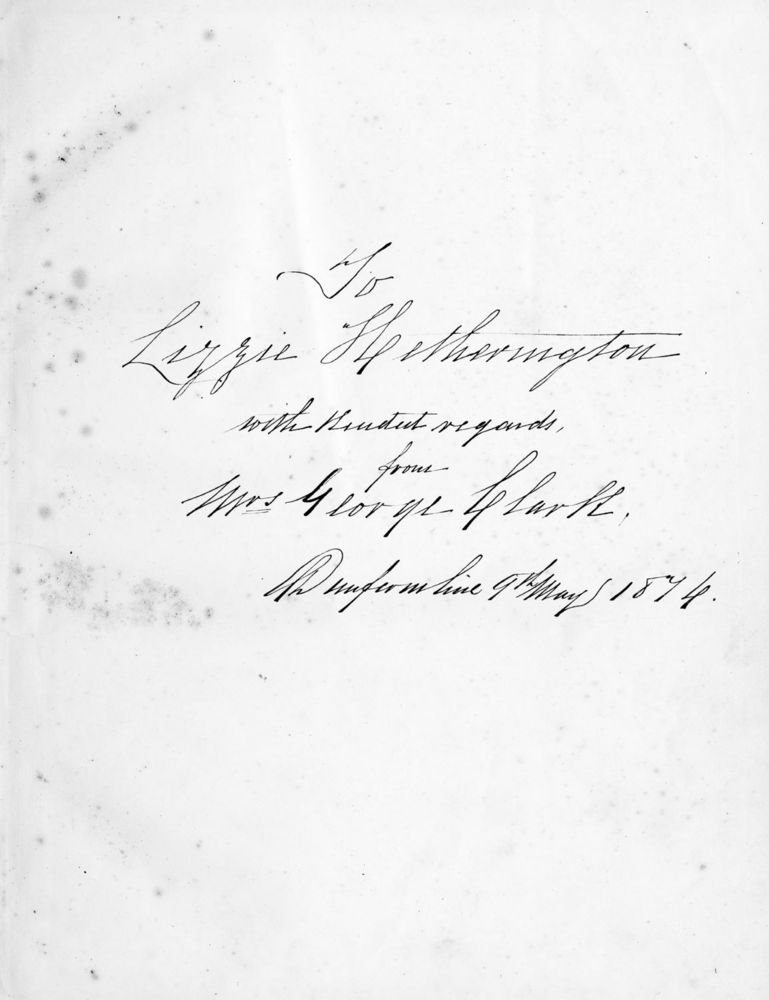 To
Lizzie Hetherington
with kindest regards,
from
Mrs George Clark,
Dunfermline 9th May 1874.